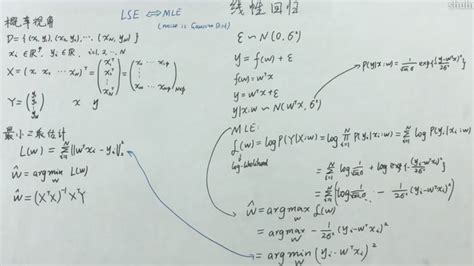 shuhu
线性回归
概率视角
LSE ⇔ MLE
(noise is Gaussian Dist)
D = {(x₁, y₁), (x₂, y₂), ⋯, (x_N, y_N)}
x_i ∈ ℝ^p, y_i ∈ ℝ, i = 1, 2, ⋯ N
X = (x₁ x₂ ⋯ x_N)^T = (x₁^T x₂^T ⋮ x_N^T) = (x₁₁ ⋯ x₁p ⋮ x_N1 ⋯ x_Np)_{N×p}
Y = (y₁ y₂ ⋮ y_N) x y
最小二乘估计
L(w) = ∑_{i=1}^N ‖w^T x_i - y_i‖₂²
ŵ = argmin_w L(w)
ŵ = (X^T X)^{-1} X^T Y
ε ~ N(0, σ²)
y = f(w) + ε
f(w) = w^T x
y = w^T x + ε
y|x;w ~ N(w^T x, σ²)
P(y|x;w) = 1/(√2π σ) exp{-(y-w^T x)²/2σ²}
MLE:
ℒ(w) = log P(Y|X;w) = log ∏_{i=1}^N P(y_i|x_i;w) = ∑_{i=1}^N log P(y_i|x_i;w)
log-likelihood
= ∑_{i=1}^N log 1/(√2π σ) + log exp{-(y_i-w^T x_i)²/2σ²}
= ∑_{i=1}^N (log 1/(√2π σ) - 1/2σ² (y_i - w^T x_i)²)
ŵ = argmax_w ℒ(w)
= argmax_w - 1/2σ² (y_i - w^T x_i)²
= argmin_w (y_i - w^T x_i)²